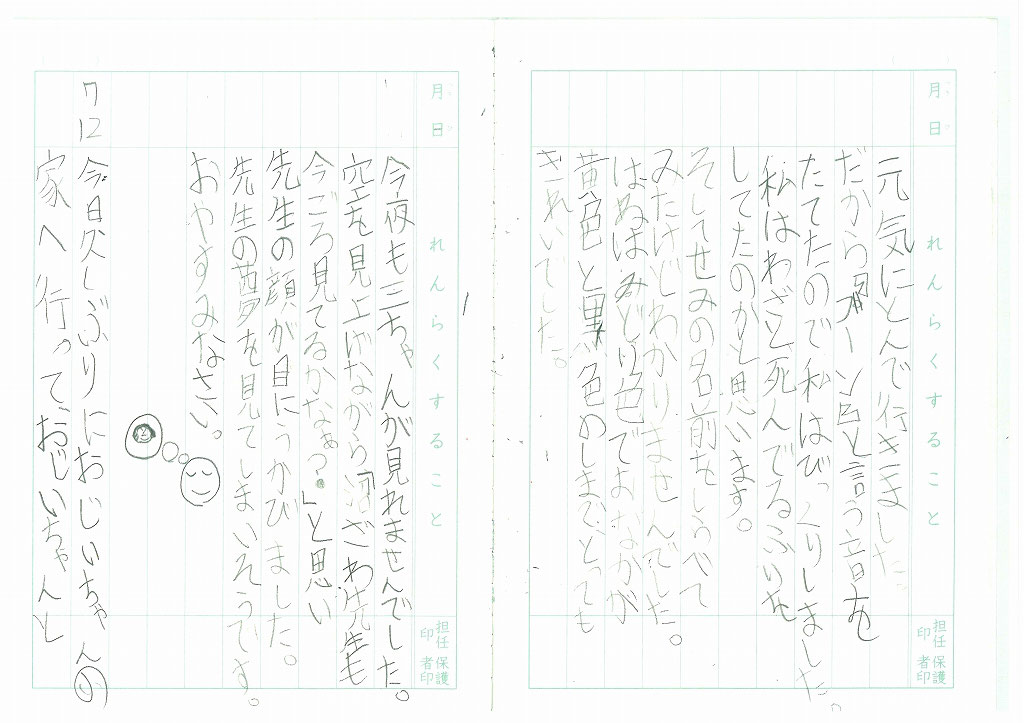 月日 れんらくすること 担任印 保護者印
元気にとんで行きました。
だから と言う音を
たてたので私はびっくりしました。
私はわざと死んでるふりを
してたのかと思います。
そしてせみの名前をしらべて
みたけどわかりませんでした。
はねはみどり色でおなかが
黄色と黒色のしまで、とっても
きれいでした。
月日 れんらくすること 担任印 保護者印
今夜も三ちゃんが見れませんでした。
空を見上げながら「 ざわ先生も
今ごろ見てるかなぁ?」と思い
先生の顔が目にうかびました。
先生の夢を見てしまいそうです。
おやすみなさい。
7 12 今日久しぶりにおじいちゃんの
家へ行って、おじいちゃんと